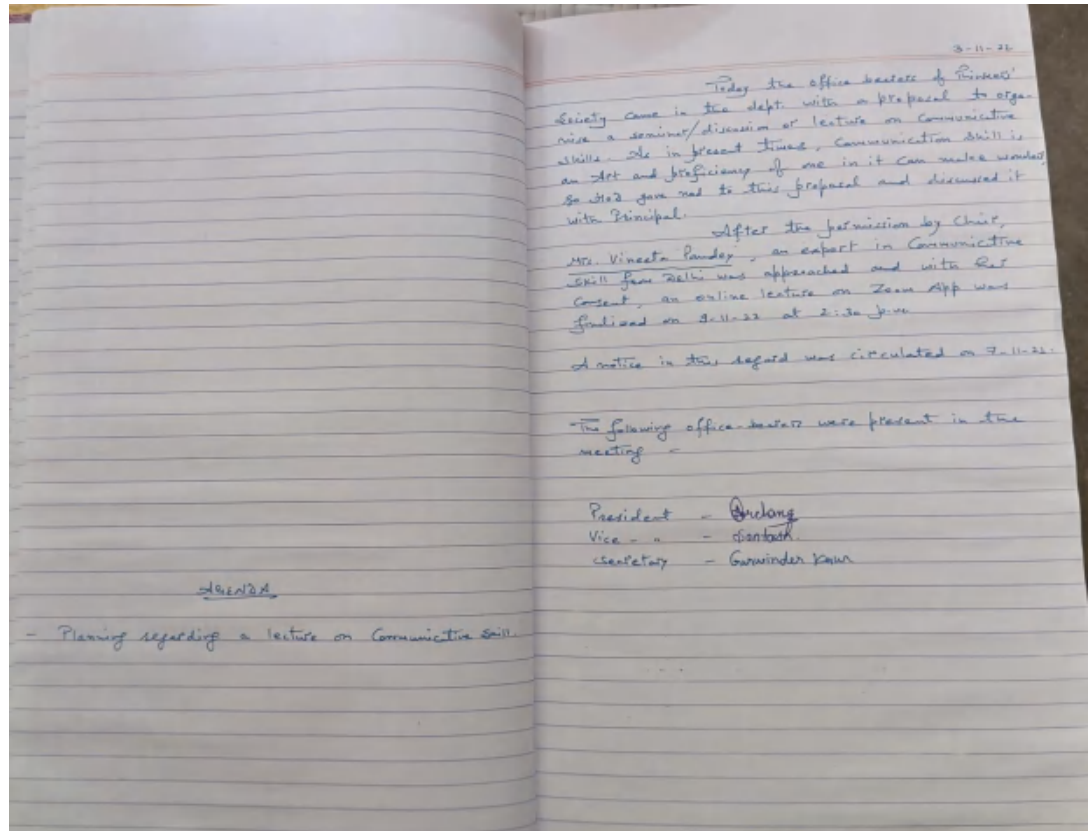 AGENDA
- Planning regarding a lecture on Communicative Skill.
3-11-22
Today the office bearers of Thinkers'
Society came in the dept. with a proposal to orga-
nise a seminar/discussion or lecture on Communicative
skills. As in present times, Communication skill is
an Art and proficiency of one in it can make wonders,
so HoD gave nod to this proposal and discussed it
with Principal.
After the permission by Chair,
Mrs. Vineeta Pandey, an expert in Communictive
skill from Delhi was approached and with her
Consent, an online lecture on Zoom App was
finalized on 9-11-22 at 2:30 p.m
A notice in this regard was circulated on 7-11-22.
The following office-bearers were present in the
meeting -
President -
Vice - " -
Secretary - Gurwinder Kaur